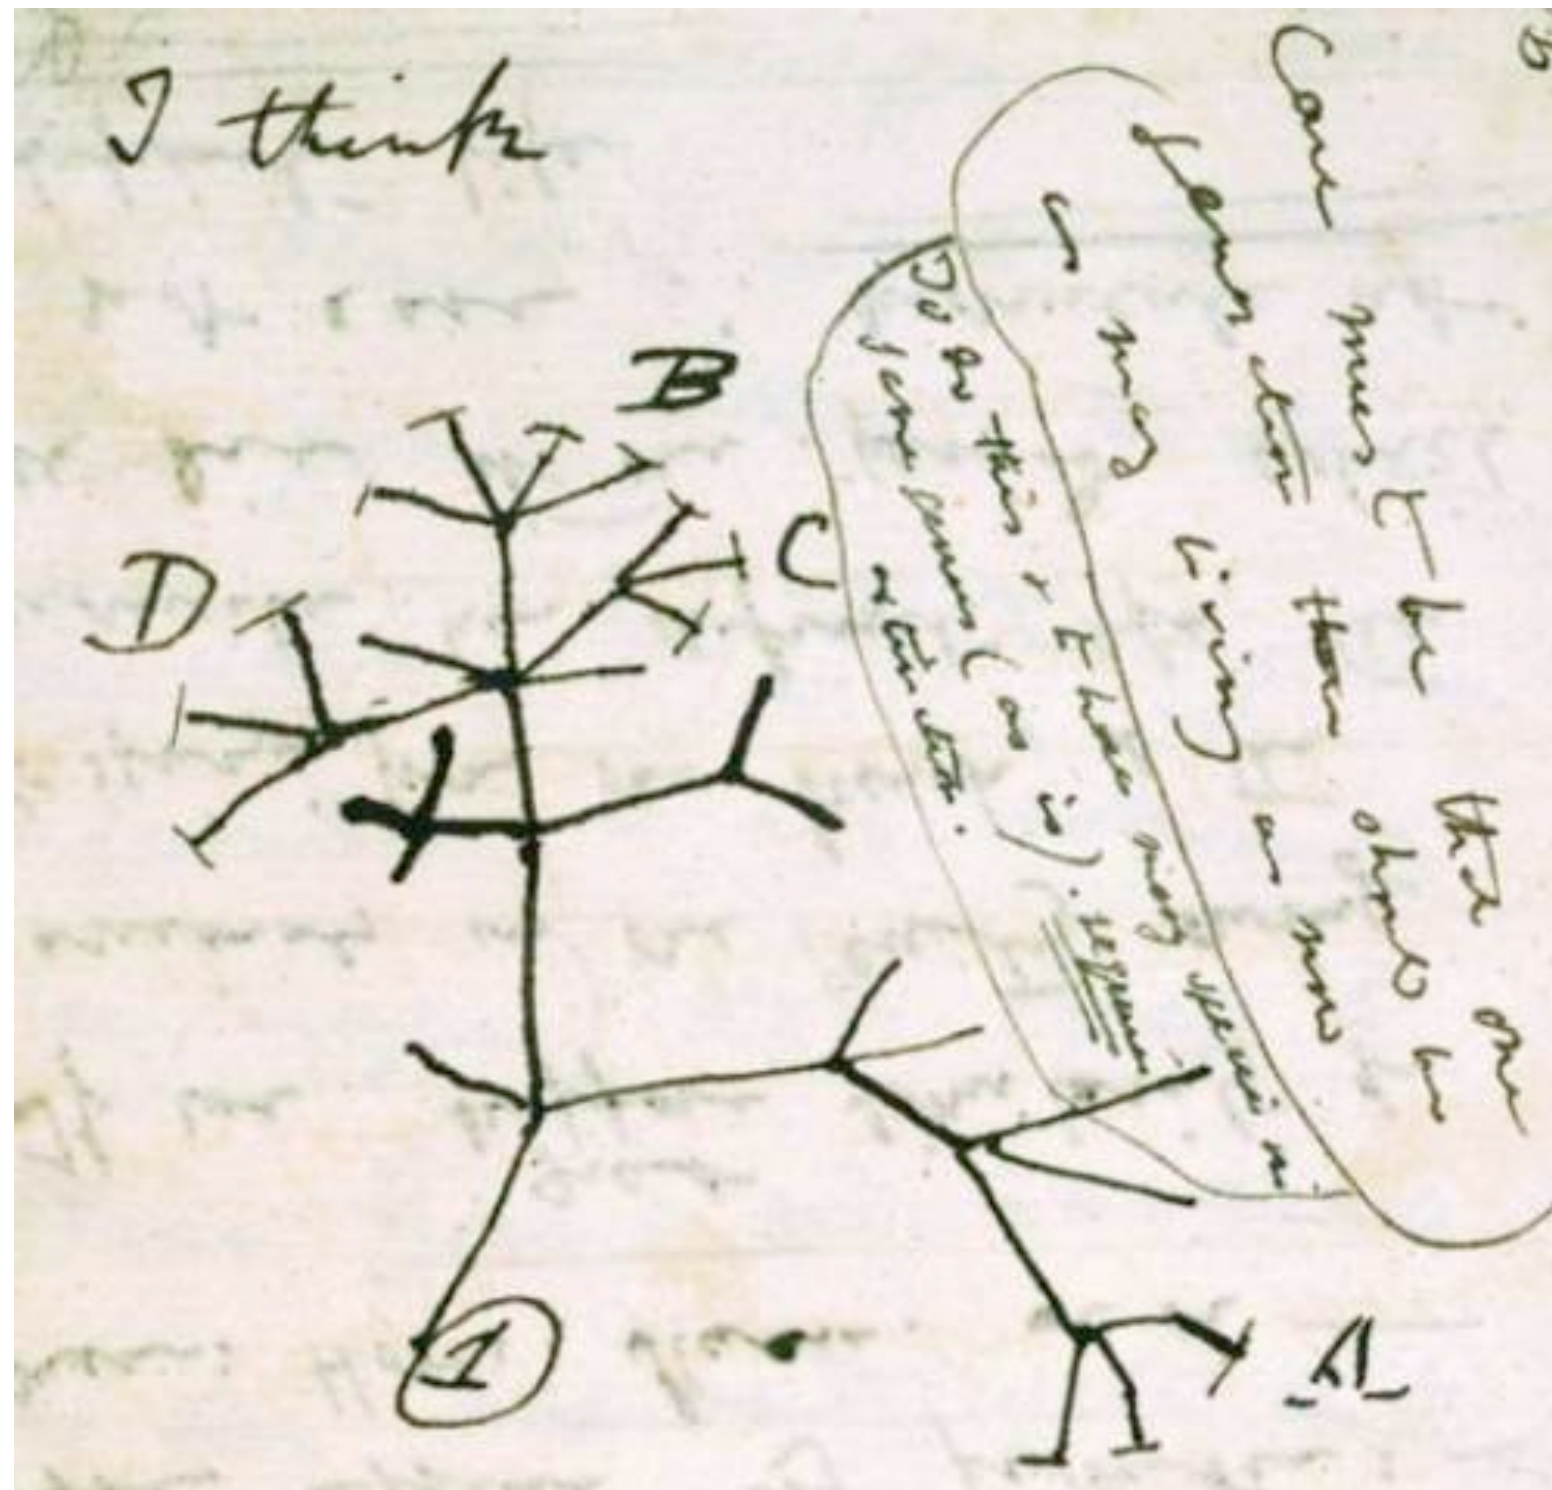 I think
B
C
D
A
1
Case must be that one
generation then should be
as many living as now
To do this & to have many species in
same genus (as is). requires
extinction.